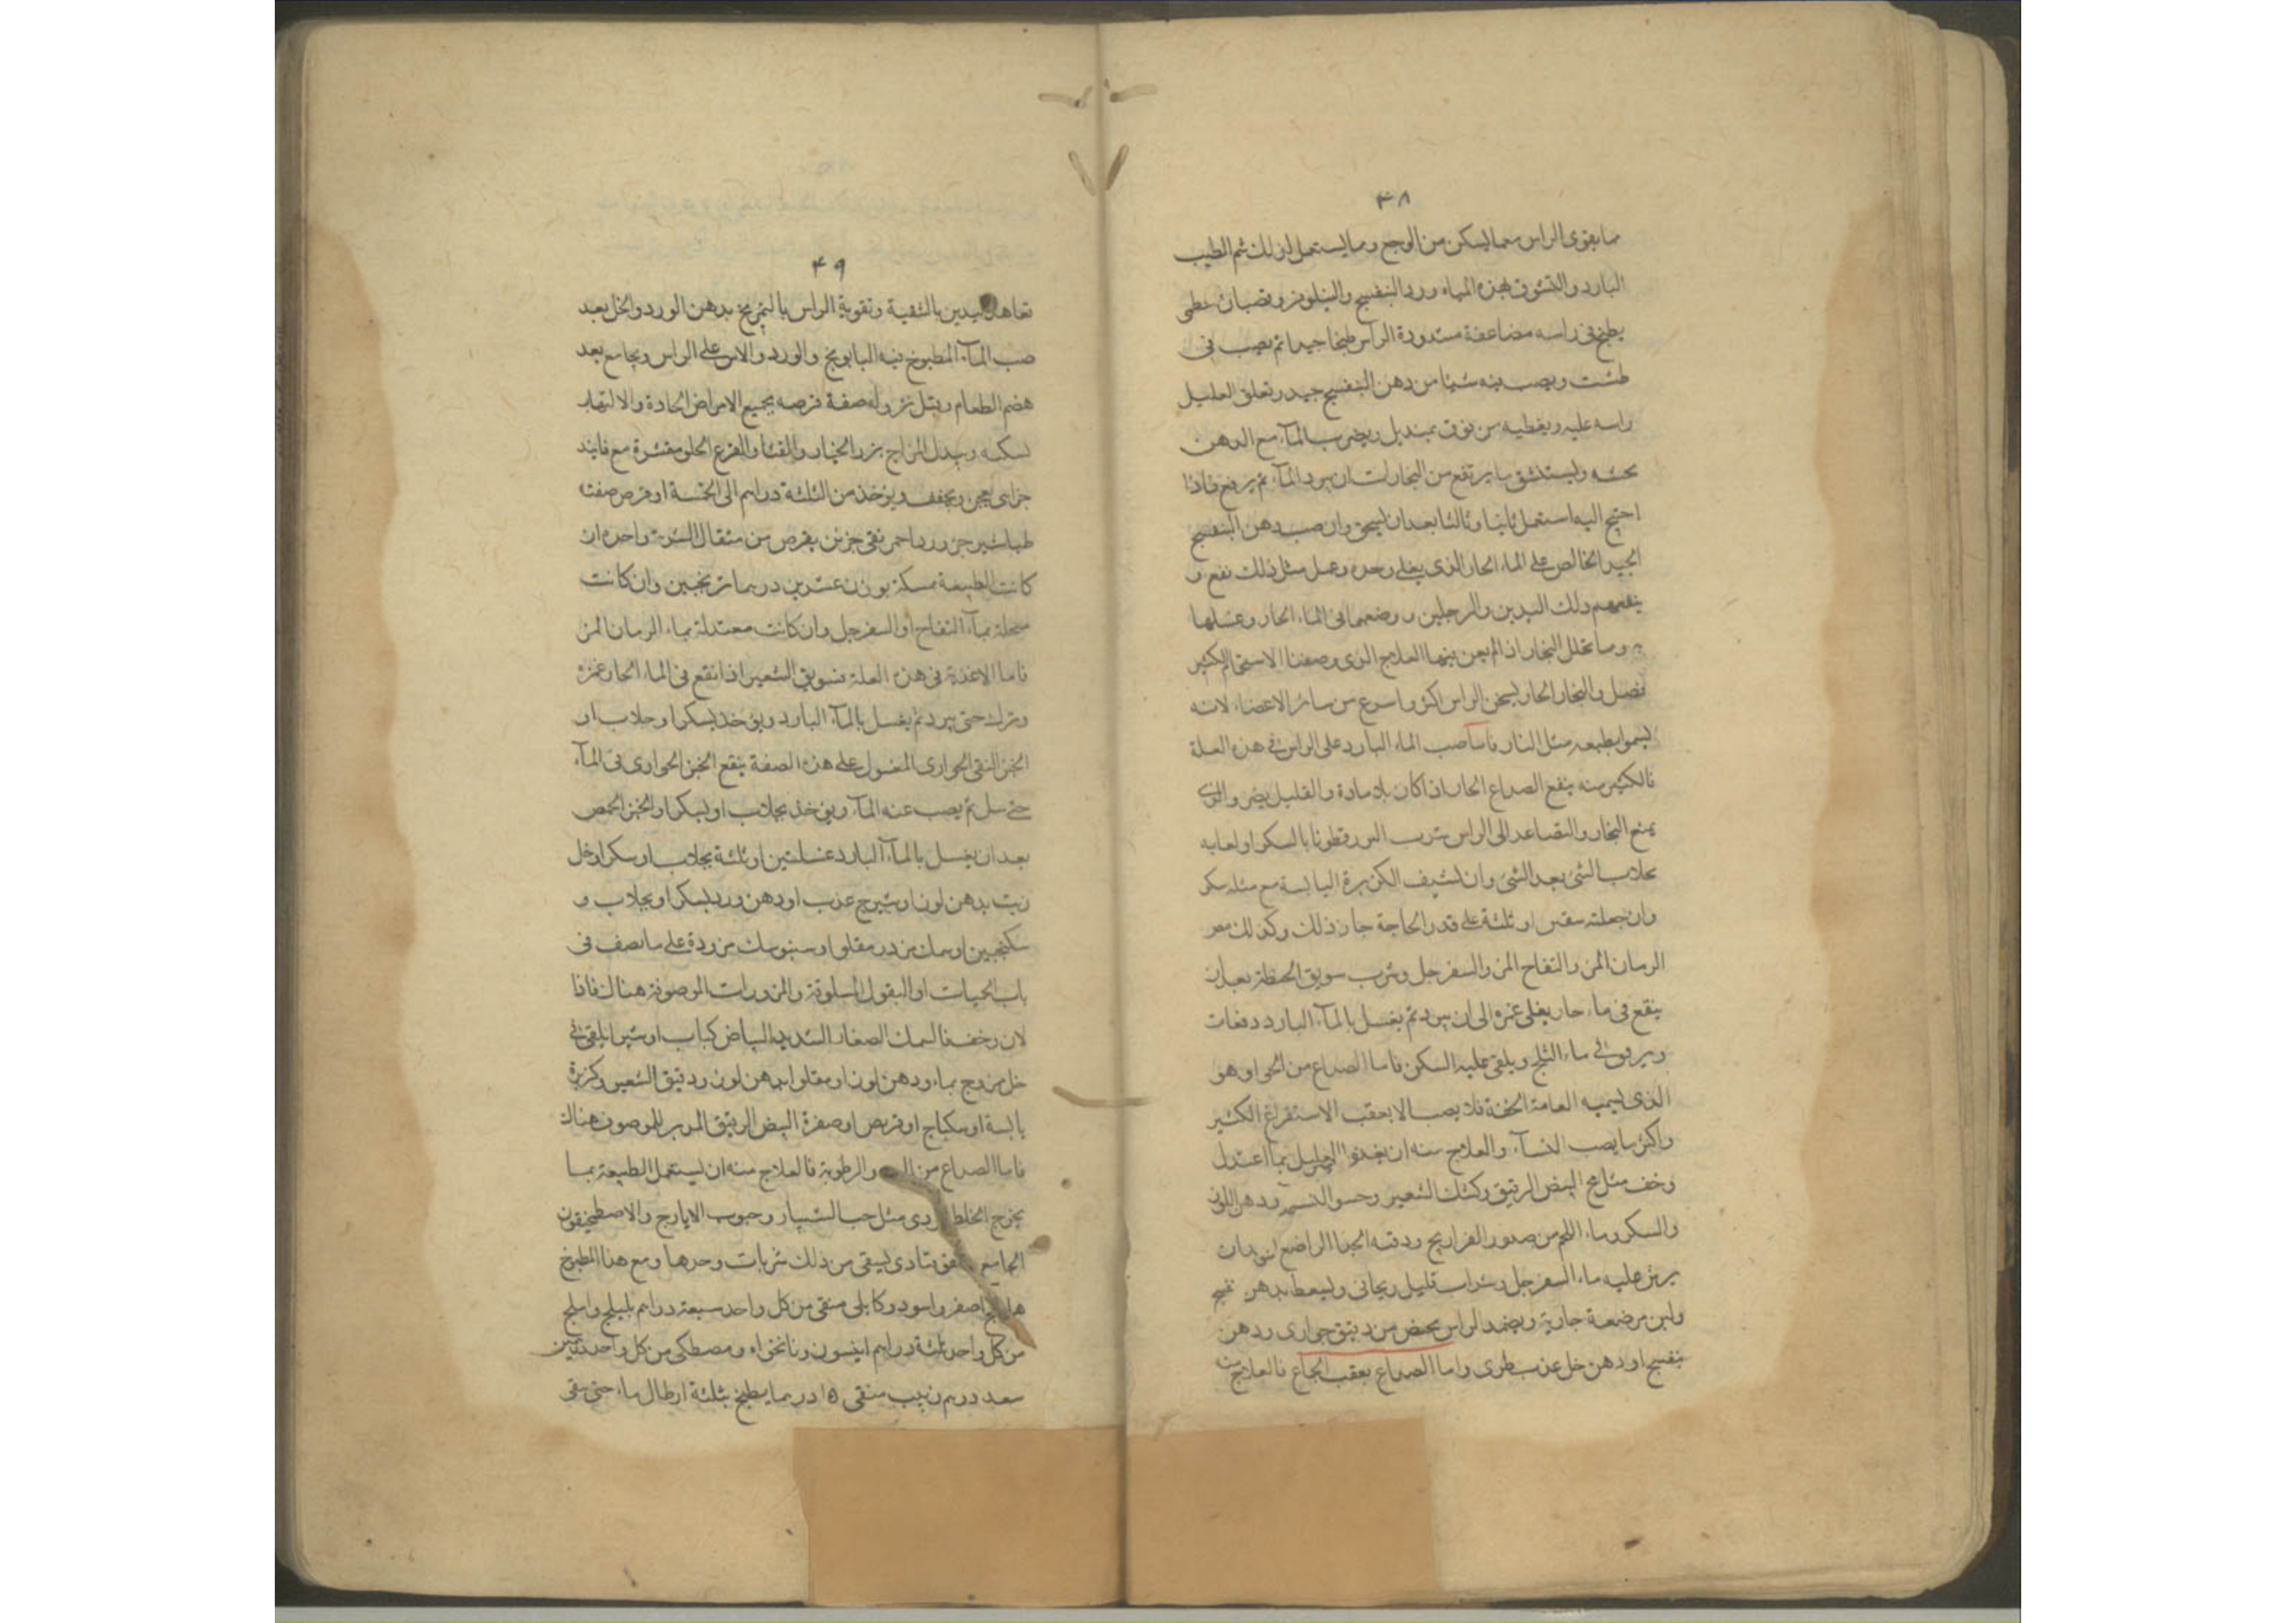 ۴۸
ما يقوى الراس مما يسكن من الوجع ومما يستعمل لذلك شم الطيب
البارد والتنشوق بهذه المياه ورد البنفسج والنيلوفر وقضبان خطمى
يطبخ فى راسه مضاعفة مسدودة الراس طبخا جيدا ثم يصب فى
طشت ويصب فيه شيئا من دهن البنفسج جيد وتعلق العليل
راسه عليه ويغطيه من فوق بمنديل ويضرب الماء مع الدهن
تحته وليستنشق ما يرتفع من البخار لت ان يبرد الماء ثم يرفع فاذا
احتيج اليه استعمل ثانيا وثالثا بعد ان يسخن وان صب دهن البنفسج
الجيد الخالص على الماء الحار الذى يغلى وحده وعمل مثل ذلك نفع و
ينفعهم دلك اليدين والرجلين ووضعهما فى الماء الحار وغسلها
وما تحلل البخار اذا لم يعن فيها العلاج الذى وصفنا الاستحمام الكثير
فصل والبخار الحار يسخن الراس اكثر واسرع من سائر الاعضاء لانه
ليسموا بطبعه مثل النار فاما صب الماء البارد على الراس فى هذه العلة
فالكثير منه ينفع الصداع الحار اذا كان بلا مادة والقليل يضر والذى
يمنع البخار والتصاعد الى الراس شرب البزرقطونا بالسكر او لعابه
بجلاب الشئ بعد الشئ وان تسفيف الكزبرة اليابسة مع مثله سكر
وان جعلته سفتين او ثلثة على قدر الحاجة جاز ذلك وكذلك مص
الرمان المز والتفاح المز والسفرجل وشرب سويق الحنطة بعد ان
ينقع فى ماء حار يغلى غمره الى ان يبرد ثم يغسل بالماء البارد دفعات
ويبرد فى ماء الثلج ويلقى عليه السكر فاما الصداع من الخوا وهو
الذى ليسميه العامة الخفة فلا يصب الا بعقب الاستفراغ الكثير
واكثر ما يصب النساء والعلاج منه ان يغذوا العليل بما اعتدل
وخف مثل مح البيض الرقيق وكشك الشعير وحسو الدسم ودهن اللوز
والسكر وماء اللحم من صدور الفراريج ورقبة الجدا الراضع
يرش عليه ماء السفرجل وشراب قليل ريحانى وليسعط بدهن بنفسج
ولبن مرضعة جارية ويضمد الراس بحض من دقيق حوارى ودهن
بنفسج او دهن خل عذب طرى واما الصداع بعقب الجماع فالعلاج منه
۴۹
تعاهد اليدين بالتنقية وتقوية الراس بالتمريخ بدهن الورد والخل بعد
صب الماء المطبوخ فيه البابونج والورد والاس على الراس ويجامع بعد
هضم الطعام وقبل نزوله صفة قرصه بجميع الامراض الحادة والالتهاب
لسكه ويبدل المزاج بزر الخيار والقثا والقرع الحلو مقشرة مع فانيذ
خزاى يعجن ويجفف ويؤخذ من الثلثة دراهم الى الخمسة او قرص صفته
طباشير جز ورد احمر نقى جزئين يقرص من مثقال الشربة واحدة ان
كانت الطبيعة ممسكة بوزن عشرين درهما ترنجبين وان كانت
منحلة بماء التفاح او السفرجل وان كانت معتدلة بماء الرمان المز
فاما الاغذية فى هذه العلة فسويق الشعير اذا نقع فى الماء الحار غمره
وترك حتى يبرد ثم يغسل بالماء البارد ويؤخذ بسكر او جلاب او
الخبز النقى الحوارى المغسول على هذه الصفة ينقع الخبز الحوارى فى الماء
حتى ثم يصب عنه الماء ويؤخذ بجلاب او بسكر او الخبز الخمص
بعد ان يغسل بالماء البارد غسلتين او ثلثة بجلاب او سكر او خل
زيت بدهن لوز او شيرج عذب او دهن ورد بسكر او بجلاب و
سكنجبين او سمك مزدر مقلوا او سنبوسك مزورة على ما نصف فى
باب الحميات او البقول المسلوقة والمزورات الموصوفة هناك فاذا
لان وخف فالسمك الصغار الشديد البياض كباب او شيرا يلقى فى
خل ممزوج بماء ودهن لوز او مقلوا بدهن لوز ودقيق الشعير وكزبرة
يابسة او سكباج او قريص او صفرة البيض الرقيق المدبر الموصوف هناك
فاما الصداع من والرطوبة فالعلاج منه ان ليستعمل الطبيعة بما
يخرج الخلط ردى مثل حب الشبيار وحبوب الايارج والاصطخيقون
الجامع تادى ليسقى من ذلك شربات وحدها ومع هذا المطبوخ
هليلج اصفر واسود وكابلى منقى من كل واحد سبعة دراهم بليلج واملج
من كل واحد ثلثة دراهم انيسون ونانخواه ومصطكى من كل واحد درهمين
سعد درهم زبيب منقى ١٥ درهما يطبخ بثلثة ارطال ماء حتى يبقى